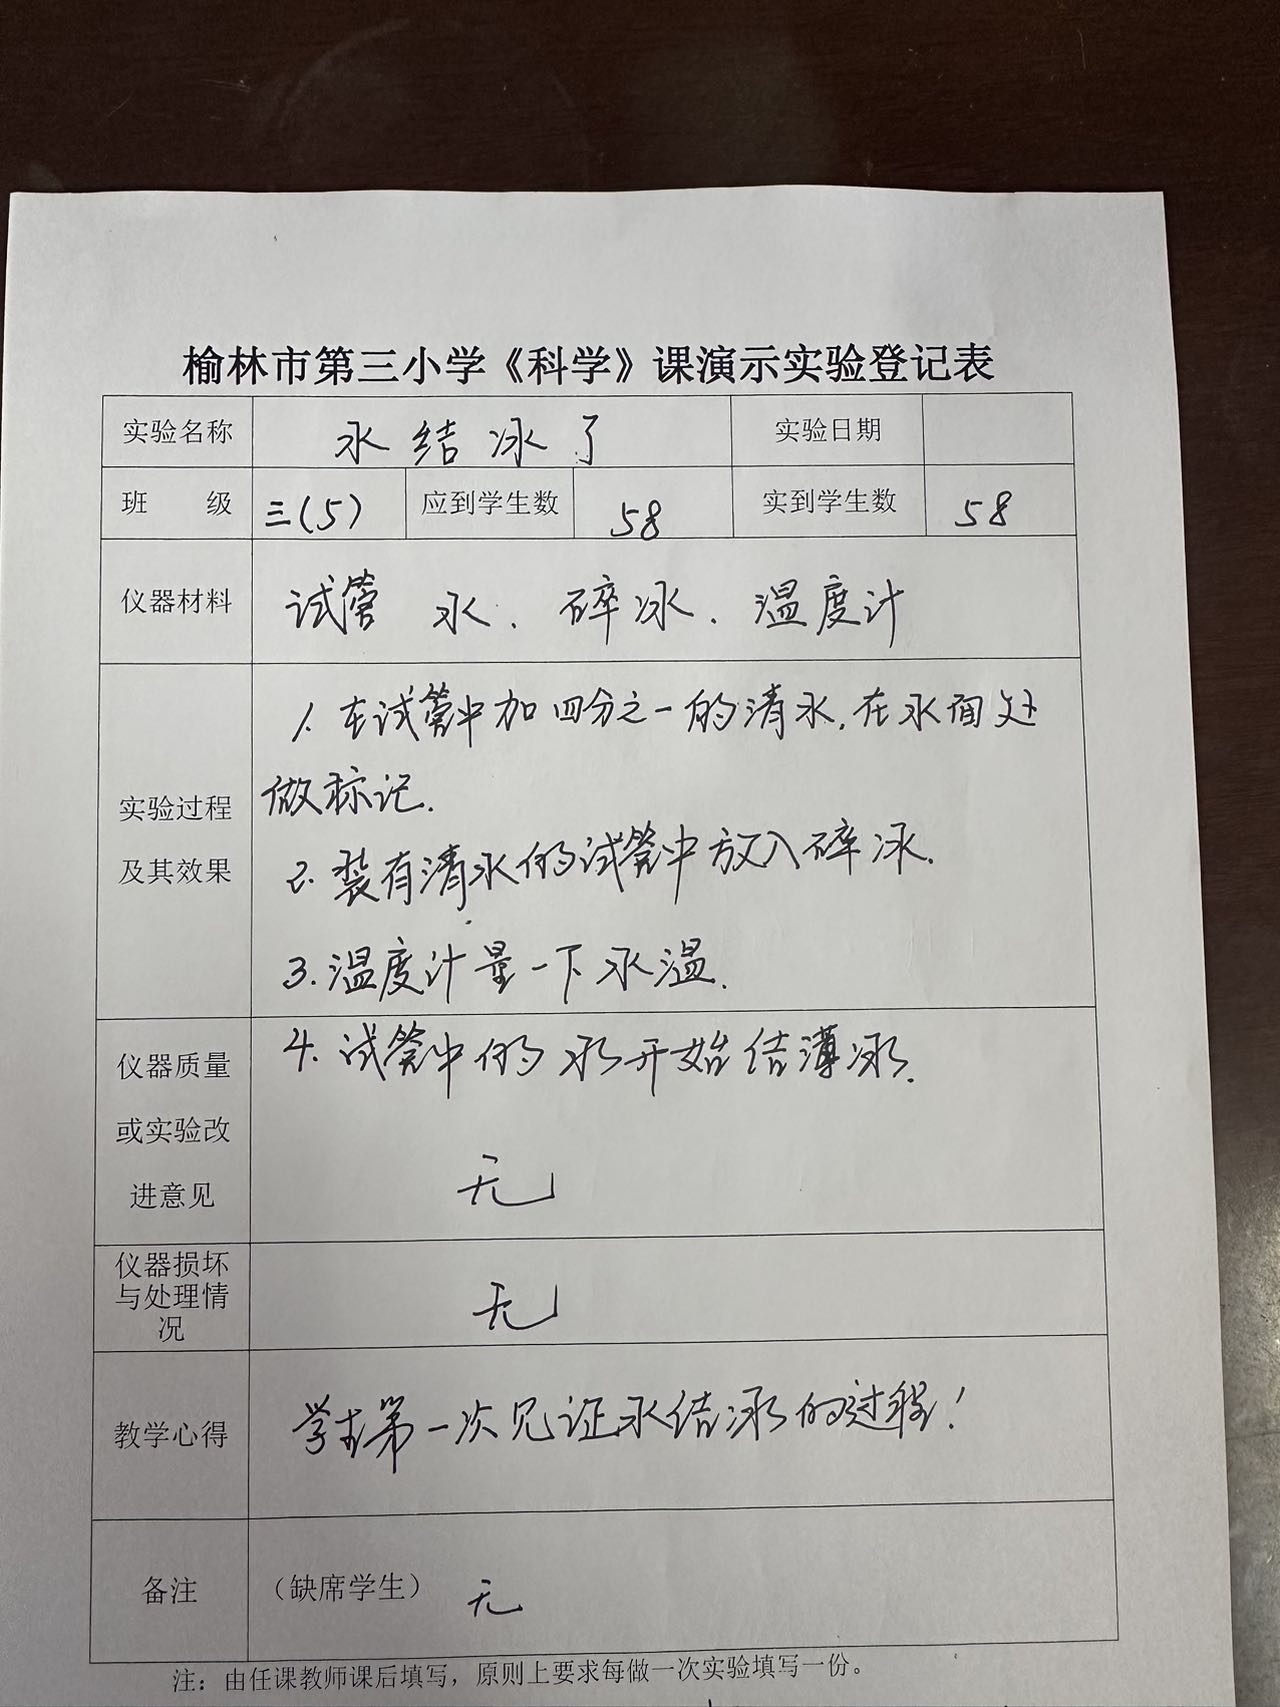 榆林市第三小学《科学》课演示实验登记表
实验名称 水结冰了 实验日期
班 级 三(5) 应到学生数 58 实到学生数 58
仪器材料 试管 水. 碎冰. 温度计
实验过程
及其效果
1. 在试管中加四分之一的清水,在水面处
做标记.
2. 装有清水的试管中放入碎冰.
3. 温度计量一下水温.
仪器质量
或实验改
进意见
4. 试管中的水开始结薄冰.
无
仪器损坏
与处理情
况
无
教学心得 学生第一次见证水结冰的过程!
备注 (缺席学生) 无
注:由任课教师课后填写,原则上要求每做一次实验填写一份。